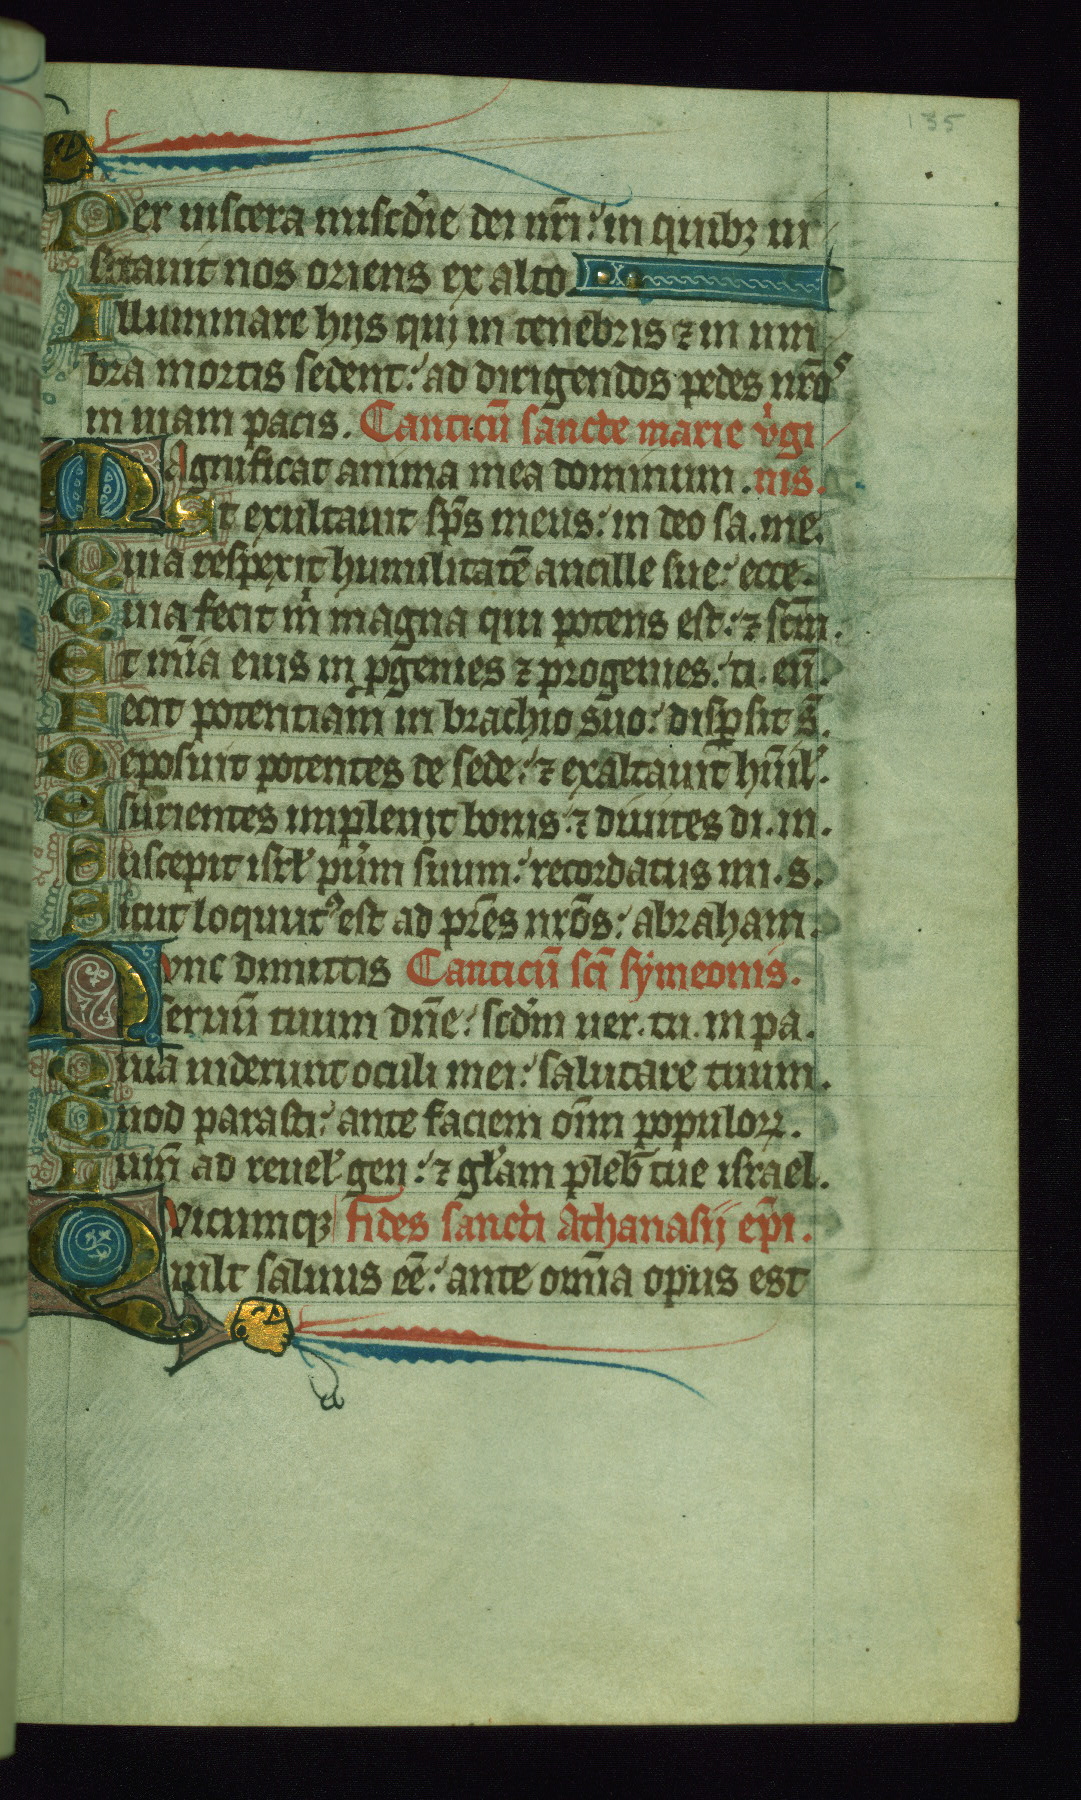 135
Per uiscera misc̄die dei nr̄i: in quibꝫ ui
sitauit nos oriens ex alto
Illuminare hijs qui in tenebris ⁊ in um
bra mortis sedent: ad dirigendos pedes nr̄os
in uiam pacis. Canticū sancte marie v̓gi
Magnificat anima mea dominum. nis.
Et exultauit sp̄s meus: in deo sa. me.
Quia respexit humilitatē ancille sue: ecce.
Quia fecit m̓ magna qui potens est: ⁊ scm̄.
Et mīa eius in p̓genies ⁊ progenies: ti. eū.
Fecit potentiam in brachio suo: dispsit s̄.
Deposuit potentes de sede: ⁊ exaltauit hūil̓.
Esurientes impleuit bonis: ⁊ diuites di. in.
Suscepit isrl̓ pūm suum: recordatus mi. s.
Sicut loqutꝰ est ad pr̄es nr̄os: abraham.
Nunc dimittis Canticū sc̄i sẏmeonis.
seruū tuum dn̄e: scd̄m uer. tu. in pa.
Quia uiderunt oculi mei: salutare tuum.
Quod parasti: ante faciem om̄m populoꝝ.
Lum̄ ad reuel̓ gen: ⁊ gl̓am pleb̄ tue israel.
Qvicumqꝫ fides sancti Athanasij ep̄i.
uult saluus eē: ante om̄ia opus est